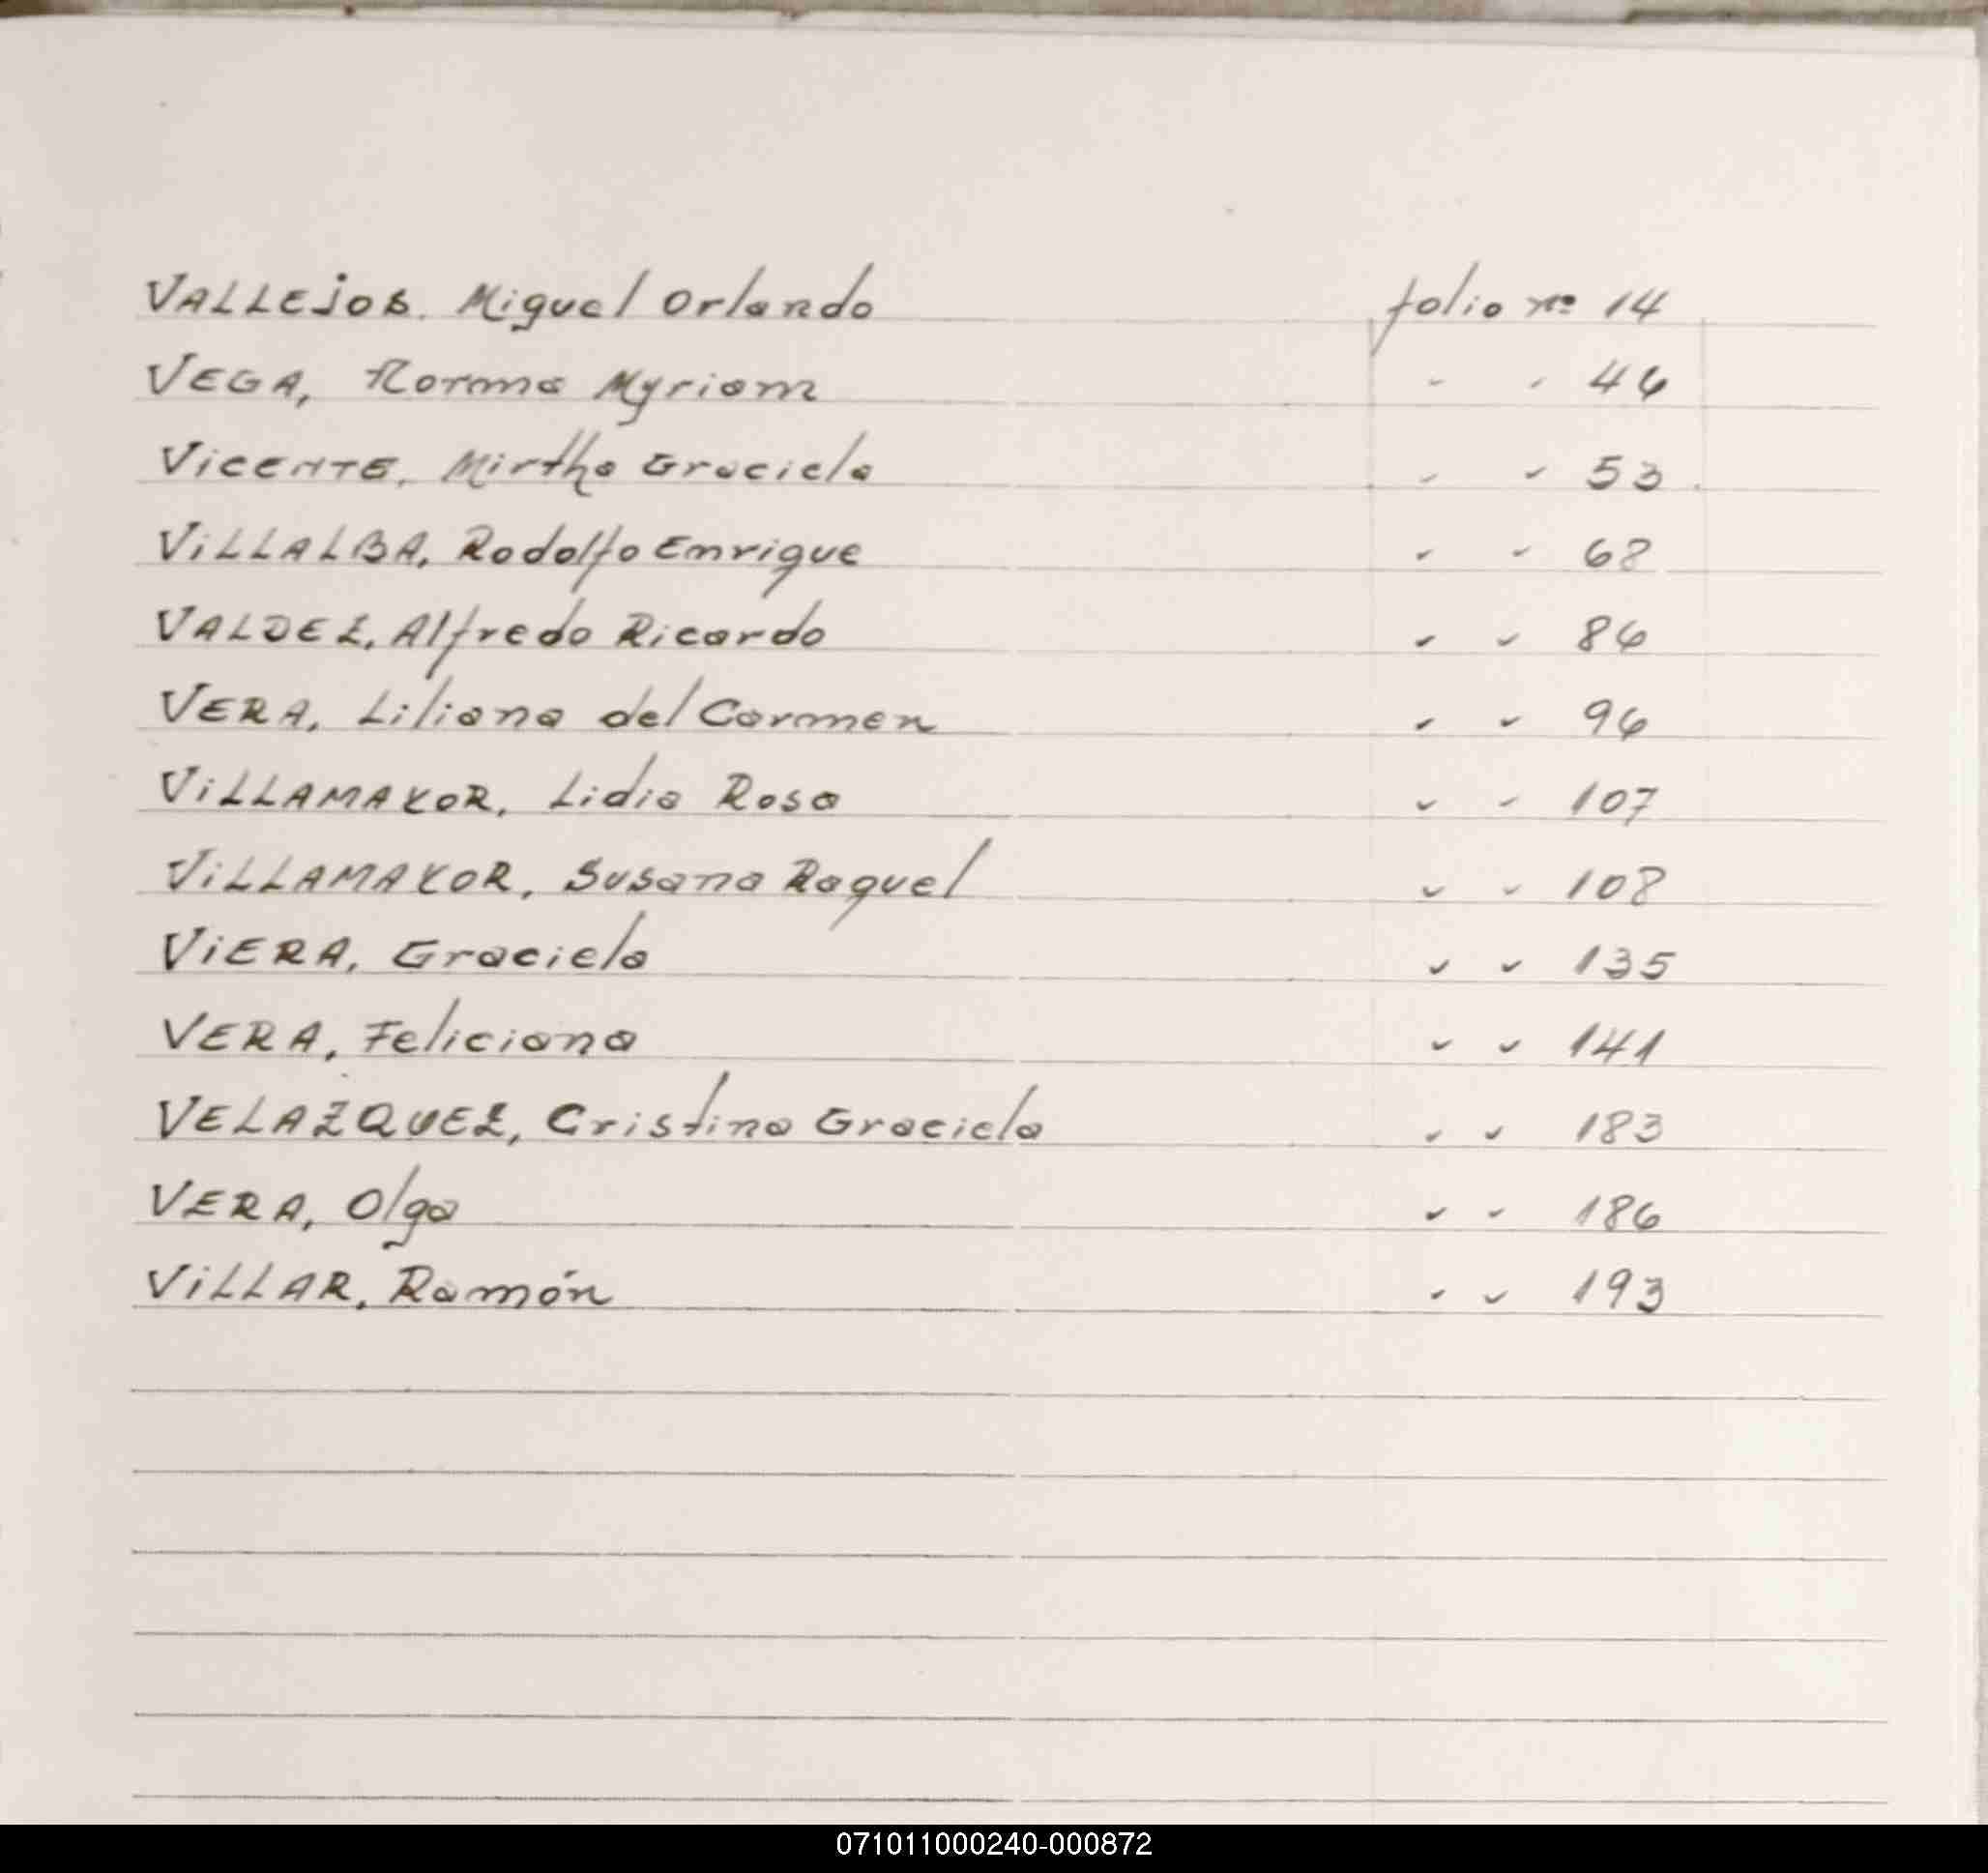 VALLEJOS. Miguel Orlando folio nº 14
VEGA, Norma Myriam " " 46
VICENTE, Mirtha Graciela " " 53
VILLALBA, Rodolfo Enrique " " 68
VALDEZ, Alfredo Ricardo " " 86
VERA, Liliana del Carmen " " 96
VILLAMAYOR, Lidia Rosa " " 107
VILLAMAYOR, Susana Raquel " " 108
VIERA, Graciela " " 135
VERA, Feliciana " " 141
VELAZQUEZ, Cristina Graciela " " 183
VERA, Olga " " 186
VILLAR, Ramón " " 193
071011000240-000872